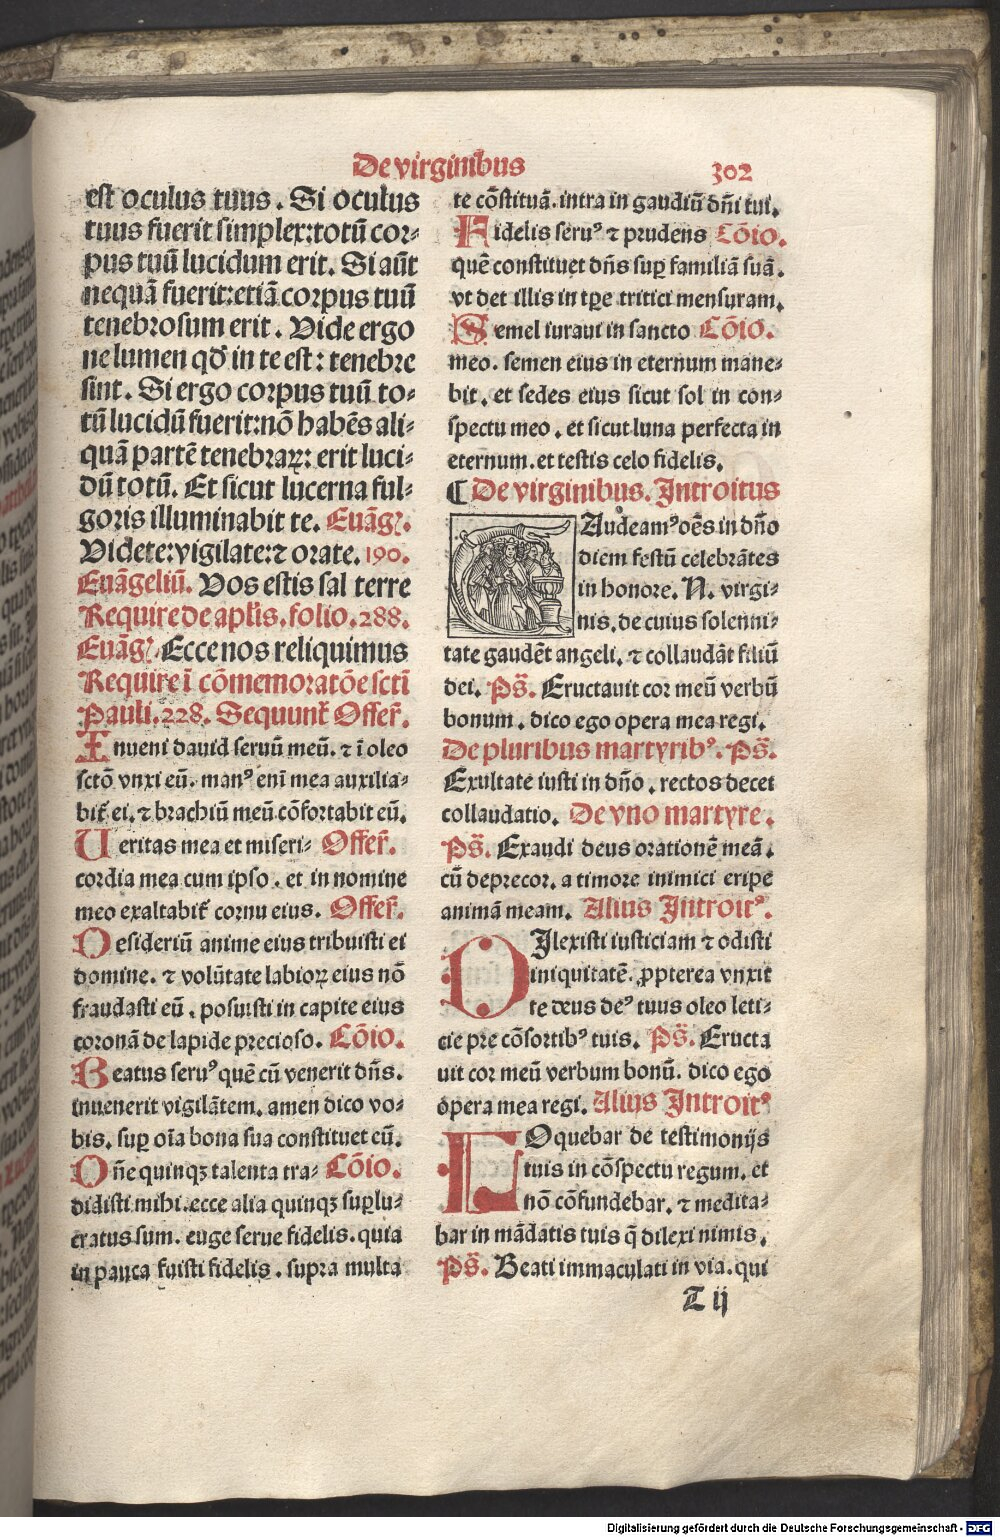 De virginibus
302
est oculus tuus. Si oculus
tuus fuerit simplex: totū cor⸗
pus tuū lucidum erit. Si aūt
nequā fuerit: etiā corpus tuū
tenebrosum erit. Vide ergo
ne lumen qđ in te est: tenebre
sint. Si ergo corpus tuū to⸗
tū lucidū fuerit: nō habēs ali⸗
quā partē tenebraꝝ: erit luci⸗
dū totū. Et sicut lucerna ful⸗
goris illuminabit te. Euāgꝭ.
Videte: vigilate: ⁊ orate. 190.
Euāgeliū. Vos estis sal terre
Require de aplīs. folio. 288.
Euāgꝭ. Ecce nos reliquimus
Require ī cōmemoratōe sctī
Pauli. 228. Sequunt̄ Offer̄.
Inueni dauid seruū meū. ⁊ ī oleo
sctō vnxi eū. manꝰ enī mea auxilia⸗
bit̄ ei. ⁊ brachiū meū cōfortabit eū.
Ueritas mea et miseri⸗ Offer̄.
cordia mea cum ipso. et in nomine
meo exaltabit̄ cornu eius. Offer̄.
Desideriū anime eius tribuisti ei
domine. ⁊ volūtate labioꝝ eius nō
fraudasti eū. posuisti in capite eius
coronā de lapide precioso. Cōio.
Beatus seruꝰ quē cū venerit dn̄s.
inuenerit vigilātem. amen dico vo⸗
bis. suꝑ oīa bona sua constituet eū.
Dn̄e quinqꝫ talenta tra⸗ Cōio.
didisti mihi. ecce alia quinqꝫ suꝑlu⸗
cratus sum. euge serue fidelis. quia
in pauca fuisti fidelis. supra multa
te cōstituā. intra in gaudiū dn̄i tui.
Fidelis seruꝰ ⁊ prudens Cōio.
quē constituet dn̄s suꝑ familiā suā.
vt det illis in tꝑe tritici mensuram.
Semel iuraui in sancto Cōio.
meo. semen eius in eternum mane⸗
bit. et sedes eius sicut sol in con⸗
spectu meo. et sicut luna perfecta in
eternum. et testis celo fidelis.
¶ De virginibus. Introitus
GAudeamꝰ oēs in dn̄o
diem festū celebrātes
in honore. N. virgi⸗
nis. de cuius solenni⸗
tate gaudēt angeli. ⁊ collaudāt filiū
dei. Ps̄. Eructauit cor meū verbū
bonum. dico ego opera mea regi.
De pluribus martyribꝰ. Ps̄.
Exultate iusti in dn̄o. rectos decet
collaudatio. De vno martyre.
Ps̄. Exaudi deus orationē meā.
cū deprecor. a timore inimici eripe
animā meam. Alius Introitꝰ.
DIlexisti iusticiam ⁊ odisti
iniquitatē. ꝓpterea vnxit
te deus deꝰ tuus oleo leti⸗
cie pre cōsortibꝰ tuis. Ps̄. Eructa
uit cor meū verbum bonū. dico ego
opera mea regi. Alius Introitꝰ
LOquebar de testimonijs
tuis in cōspectu regum. et
nō cōfundebar. ⁊ medita⸗
bar in mādatis tuis q̄ dilexi nimis.
Ps̄. Beati immaculati in via. qui
T ij
Digitalisierung gefördert durch die Deutsche Forschungsgemeinschaft - DFG